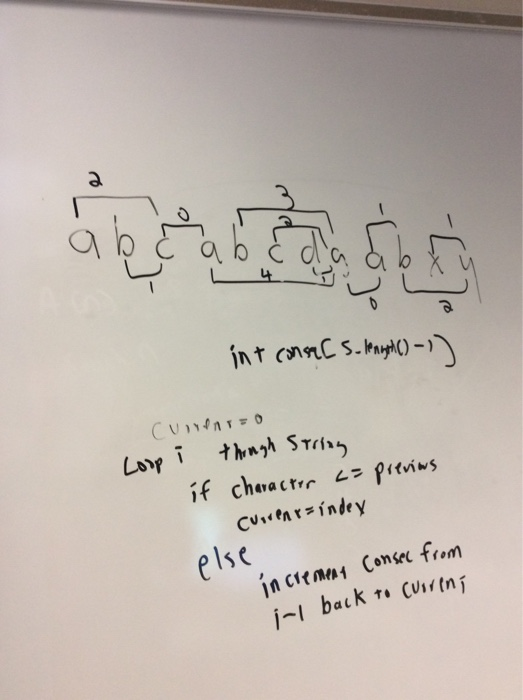 2 0 3 2 1 1
a b c a b c d a a b x y
1 4 1 0 2
int consec[s.length()-1]
current=0
Loop i through string
if character <= previous
current=index
else
increment consec from
i-1 back to current